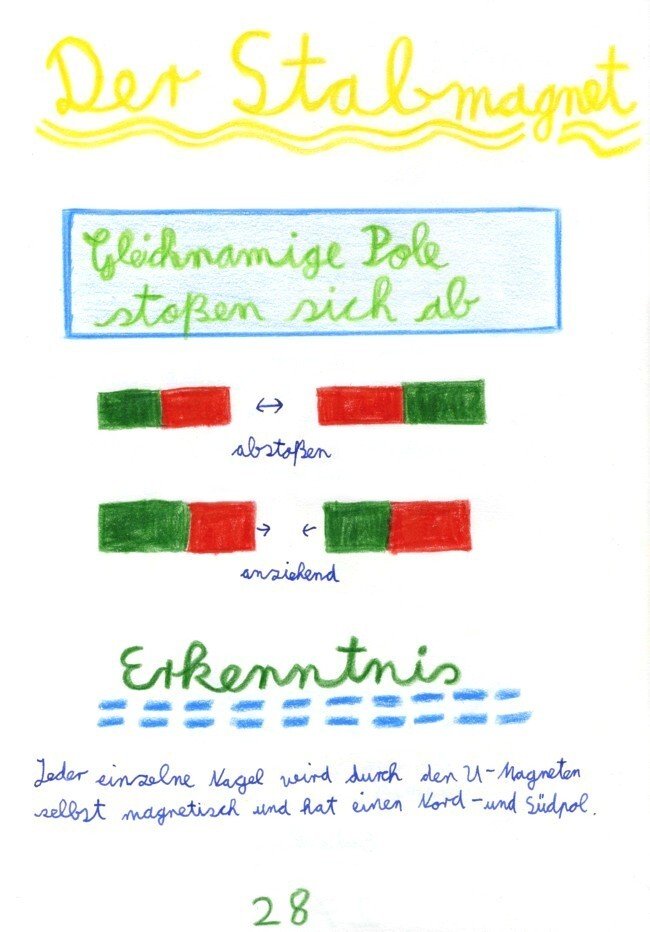 Der Stabmagnet
Gleichnamige Pole
stoßen sich ab
abstoßen
anziehend
Erkenntnis
Jeder einzelne Nagel wird durch den U-Magneten
selbst magnetisch und hat einen Nord-und Südpol.
28